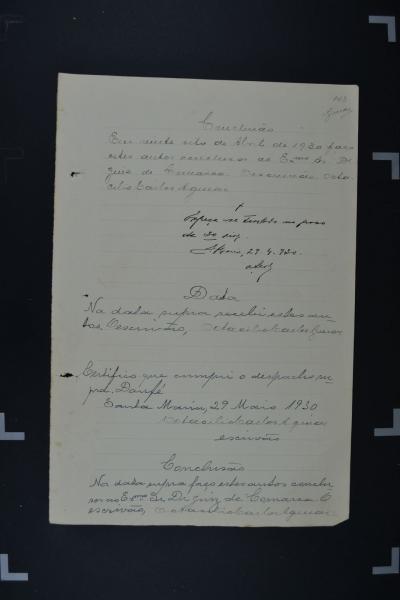 Conclusão
Em vinte oito de Abril de 1930 faço
estes autos conclusos ao Exmo Sr. Dr.
Juiz de Comarca. O escrivão Octa-
cilio Carlos Aguiar
de 30 dias
S. Maria, 29 4. 930.
Data
Na data supra recebi estes au-
tos. O escrivão, Octacilio Carlos Aguiar
Certifico que cumpri o despacho su-
pra. Dou fé
Santa Maria, 29 Maio 1930
Octacilio Carlos Aguiar
escrivão
Conclusão
Na data supra faço estes autos conclu-
sos ao Exmo Sr. Dr. Juiz de Comarca O
escrivão, Octacilio Carlos Aguiar